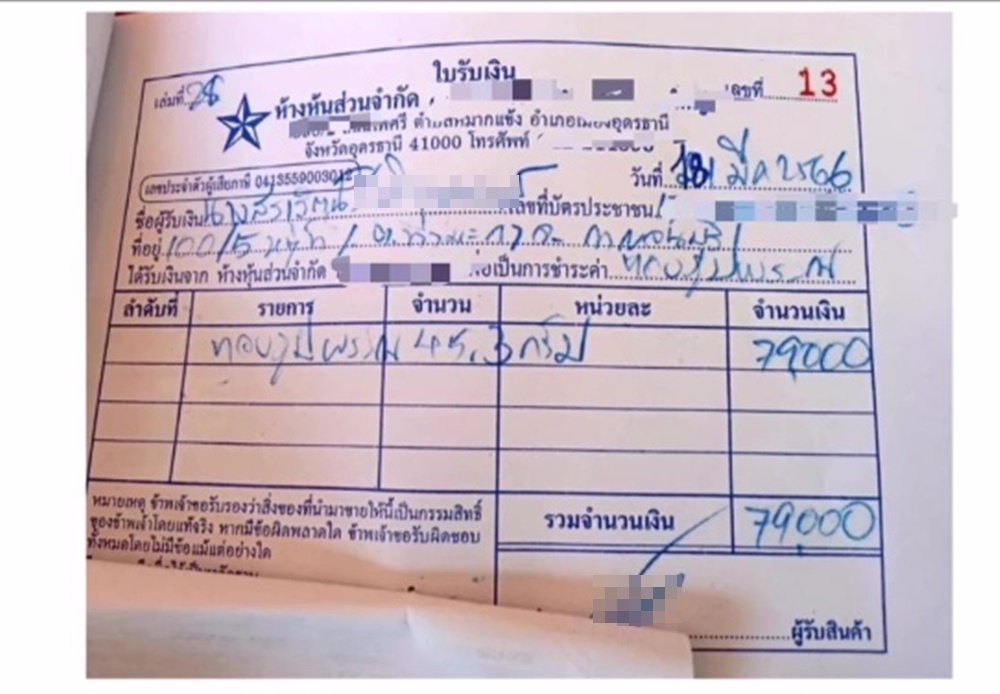 ใบรับเงิน
เล่มที่ 28
ห้างหุ้นส่วนจำกัด
เลขที่ 13
ตำบลหมากแข้ง อำเภอเมืองอุดรธานี
จังหวัดอุดรธานี 41000 โทรศัพท์
เลขประจำตัวผู้เสียภาษี
วันที่ มีค 2566
ชื่อผู้รับเงิน เลขที่บัตรประชาชน
ที่อยู่ 100/5
ได้รับเงินจาก ห้างหุ้นส่วนจำกัด เพื่อเป็นการชำระค่า ทองรูปพรรณ
ลำดับที่ รายการ จำนวน หน่วยละ จำนวนเงิน
ทองรูปพรรณ 45.3 กรัม 79,000
หมายเหตุ ข้าพเจ้าขอรับรองว่าสิ่งของที่นำมาขายให้นี้เป็นกรรมสิทธิ์
ของข้าพเจ้าโดยแท้จริง หากมีข้อผิดพลาดใด ข้าพเจ้าขอรับผิดชอบ
ทั้งหมดโดยไม่มีข้อแม้แต่อย่างใด
รวมจำนวนเงิน 79,000
ผู้รับสินค้า